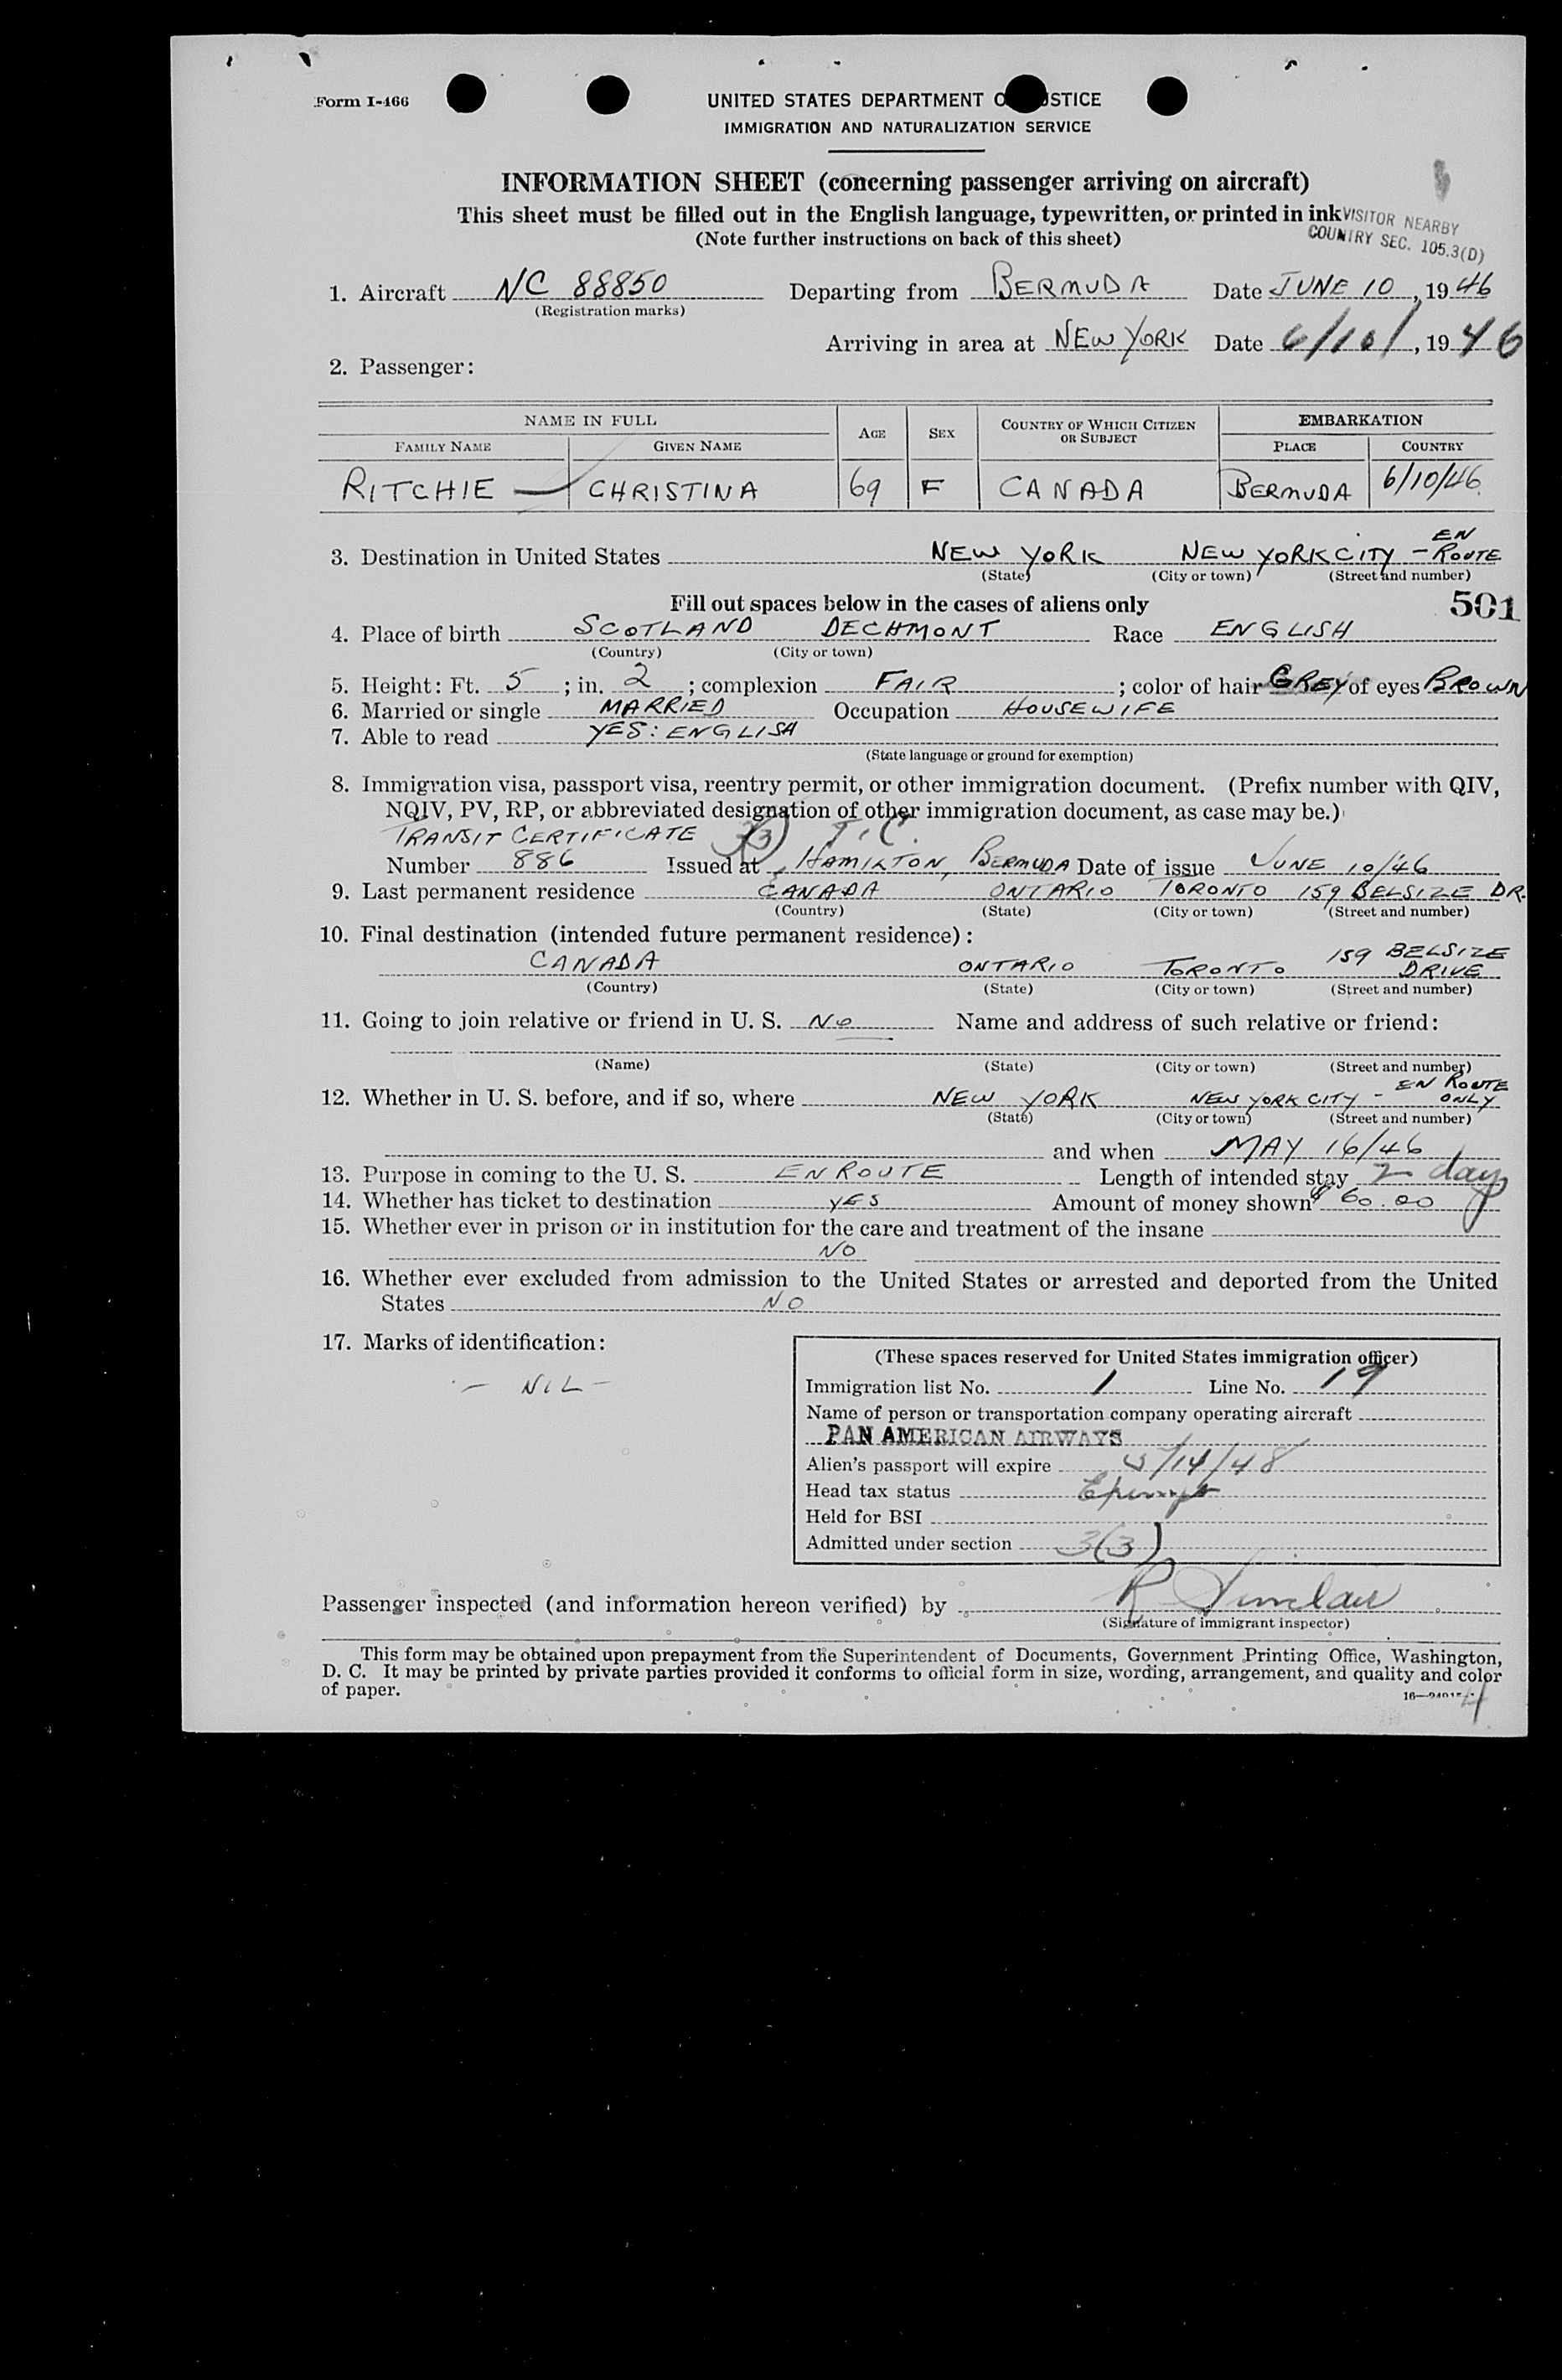 Form I-466
UNITED STATES DEPARTMENT O STICE
IMMIGRATION AND NATURALIZATION SERVICE
INFORMATION SHEET (concerning passenger arriving on aircraft)
This sheet must be filled out in the English language, typewritten, or printed in ink
VISITOR NEARBY
COUNTRY SEC. 105.3(D)
(Note further instructions on back of this sheet)
1. Aircraft NC 88850 Departing from BERMUDA Date JUNE 10, 1946
(Registration marks)
Arriving in area at NEW YORK Date 6/10/, 1946
2. Passenger:
NAME IN FULL AGE SEX COUNTRY OF WHICH CITIZEN OR SUBJECT EMBARKATION
FAMILY NAME GIVEN NAME PLACE COUNTRY
RITCHIE — CHRISTINA 69 F CANADA BERMUDA 6/10/46
3. Destination in United States NEW YORK NEW YORK CITY - EN ROUTE
(State) (City or town) (Street and number)
Fill out spaces below in the cases of aliens only 501
4. Place of birth SCOTLAND DECHMONT Race ENGLISH
(Country) (City or town)
5. Height: Ft. 5; in. 2; complexion FAIR; color of hair GREY of eyes BROWN
6. Married or single MARRIED Occupation HOUSEWIFE
7. Able to read YES: ENGLISH
(State language or ground for exemption)
8. Immigration visa, passport visa, reentry permit, or other immigration document. (Prefix number with QIV,
NQIV, PV, RP, or abbreviated designation of other immigration document, as case may be.)
TRANSIT CERTIFICATE T.C.
Number 886 Issued at HAMILTON, BERMUDA Date of issue JUNE 10/46
9. Last permanent residence CANADA ONTARIO TORONTO 159 BELSIZE DR.
(Country) (State) (City or town) (Street and number)
10. Final destination (intended future permanent residence):
CANADA ONTARIO TORONTO 159 BELSIZE DRIVE
(Country) (State) (City or town) (Street and number)
11. Going to join relative or friend in U. S. No Name and address of such relative or friend:
(Name) (State) (City or town) (Street and number)
12. Whether in U. S. before, and if so, where NEW YORK NEW YORK CITY - EN ROUTE ONLY
(State) (City or town) (Street and number)
and when MAY 16/46
13. Purpose in coming to the U. S. EN ROUTE Length of intended stay 2 days
14. Whether has ticket to destination YES Amount of money shown $60.00
15. Whether ever in prison or in institution for the care and treatment of the insane
NO
16. Whether ever excluded from admission to the United States or arrested and deported from the United
States NO
17. Marks of identification:
- NIL -
(These spaces reserved for United States immigration officer)
Immigration list No. 1 Line No. 19
Name of person or transportation company operating aircraft
PAN AMERICAN AIRWAYS
Alien's passport will expire 5/14/48
Head tax status
Held for BSI
Admitted under section 3(3)
Passenger inspected (and information hereon verified) by R Sinclair
(Signature of immigrant inspector)
This form may be obtained upon prepayment from the Superintendent of Documents, Government Printing Office, Washington,
D. C. It may be printed by private parties provided it conforms to official form in size, wording, arrangement, and quality and color
of paper.